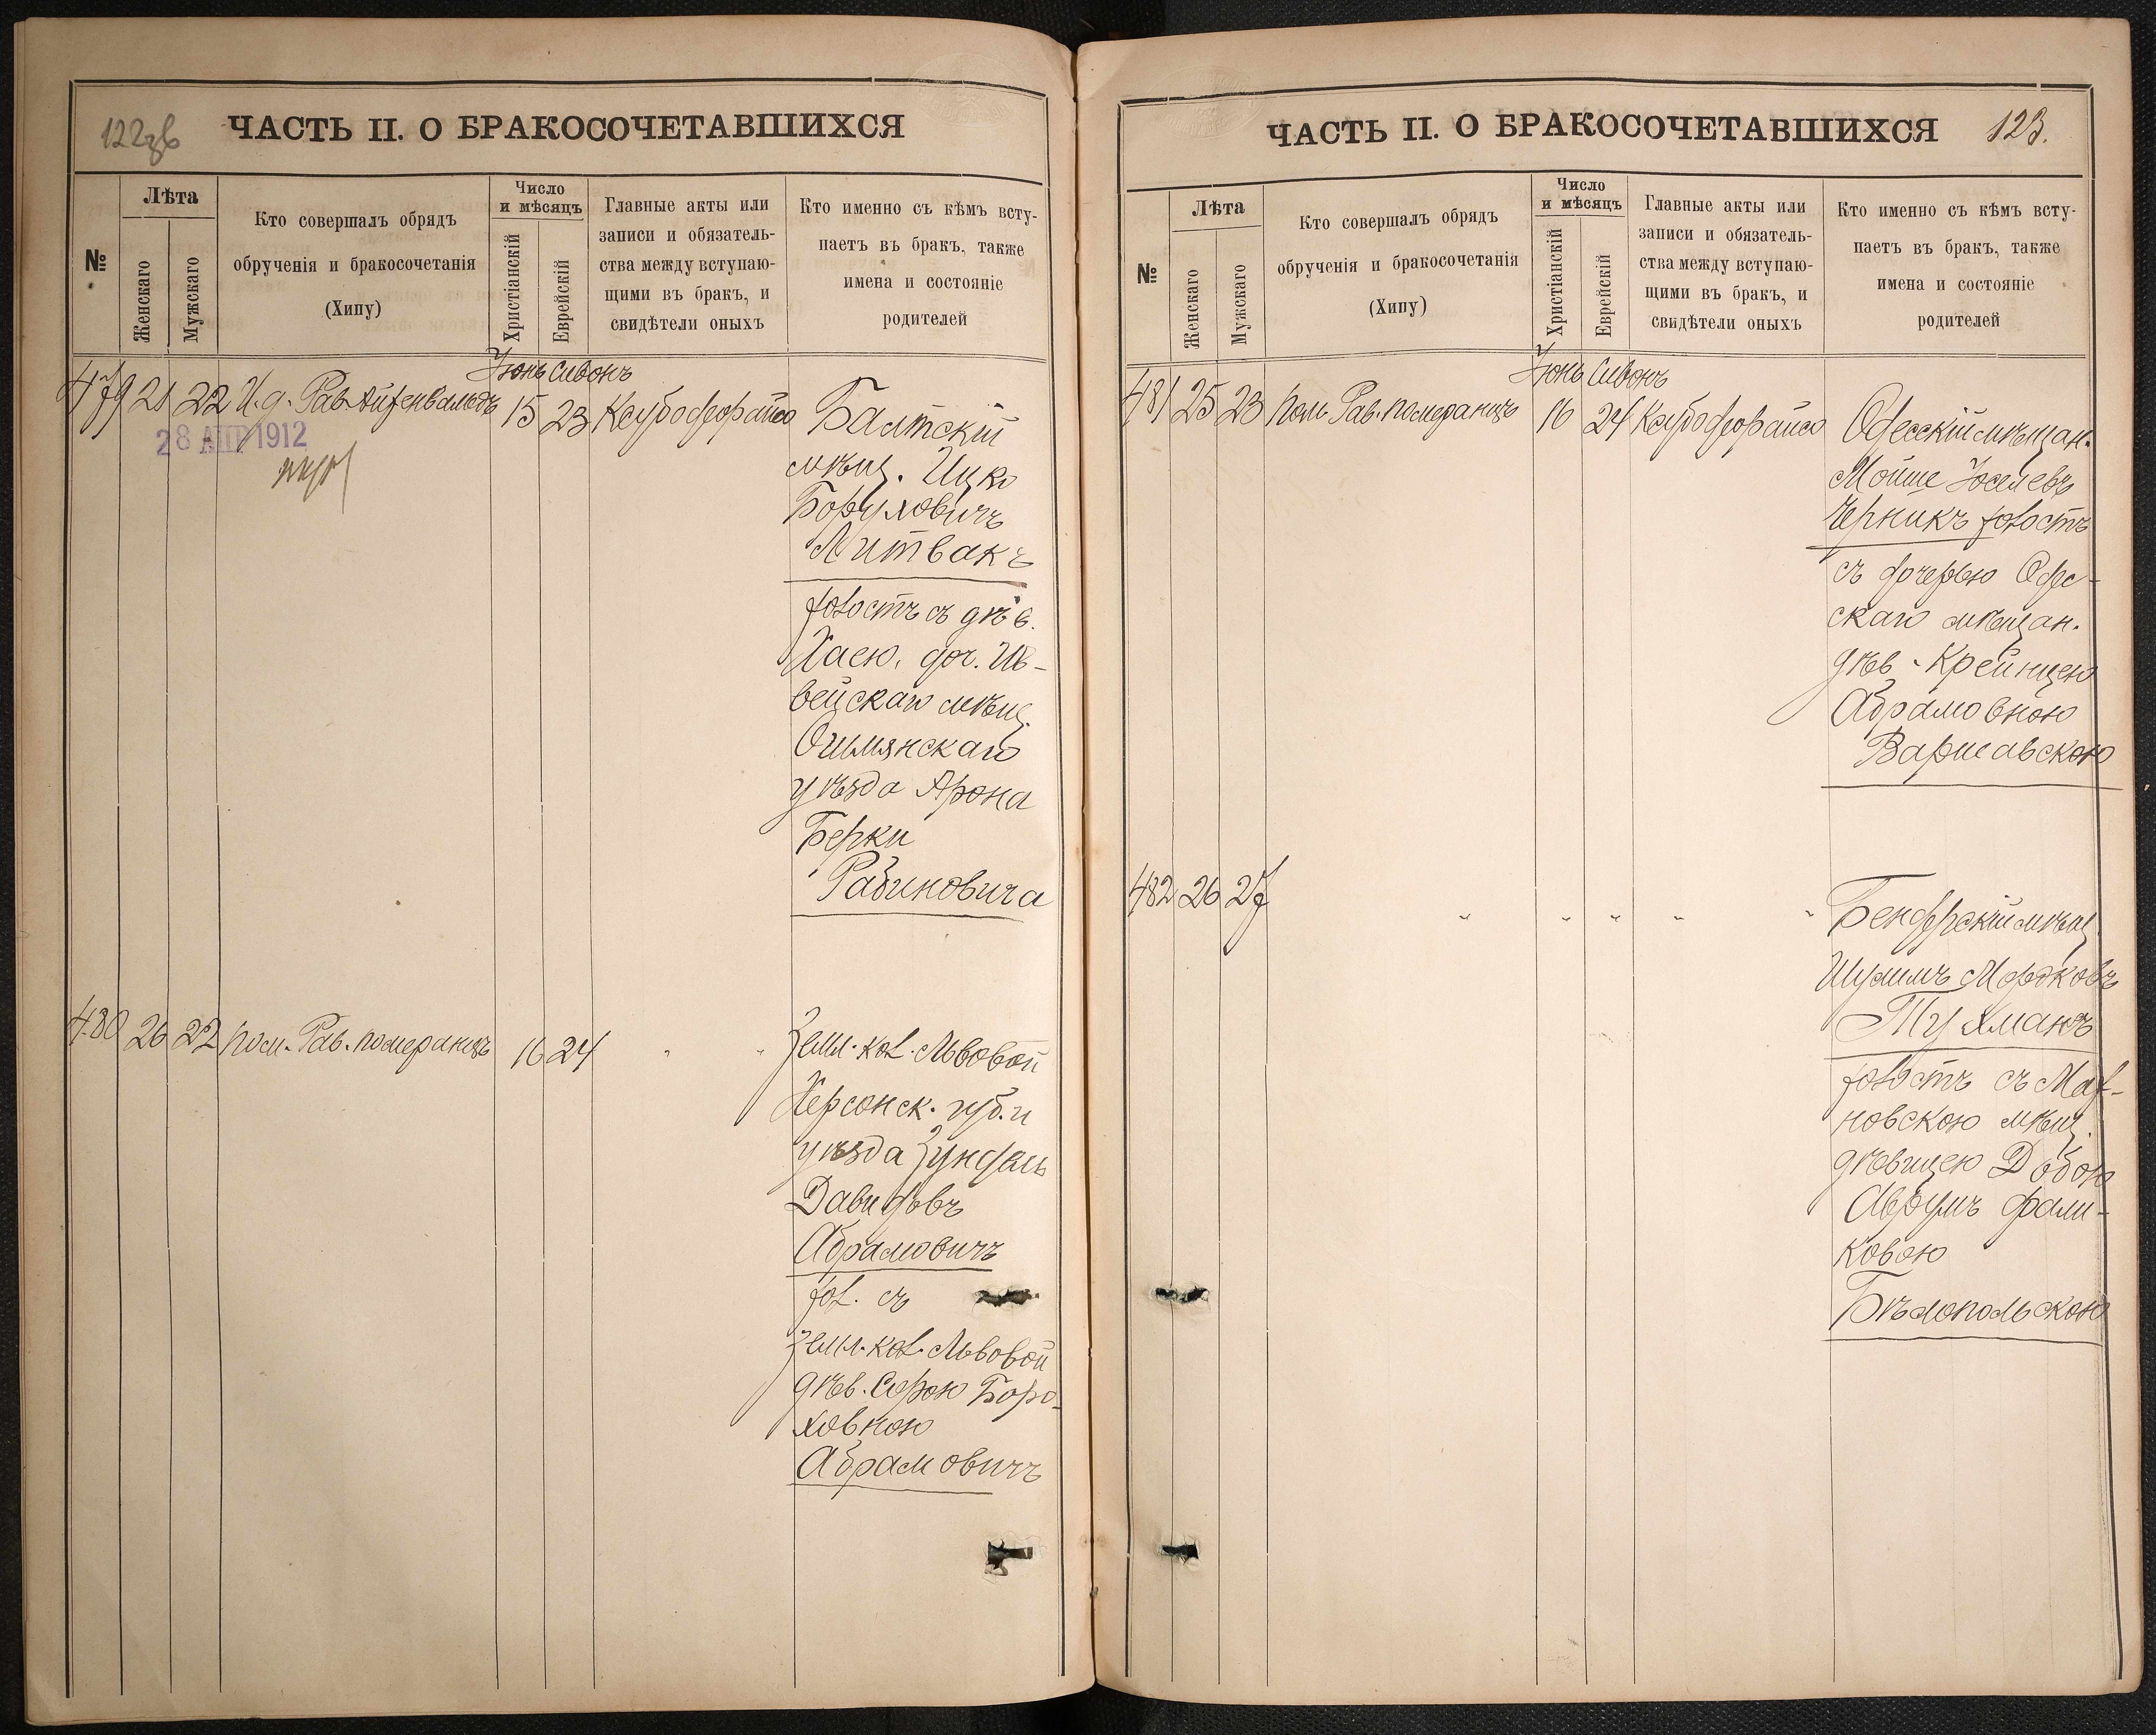 122об
ЧАСТЬ II. О БРАКОСОЧЕТАВШИХСЯ
№
Лѣта
Женскаго
Мужскаго
Кто совершалъ обрядъ
обрученія и бракосочетанія
(Хипу)
Число
и мѣсяцъ
Христіанскій
Еврейскій
Главные акты или
записи и обязатель-
ства между вступаю-
щими въ бракъ, и
свидѣтели оныхъ
Кто именно съ кѣмъ всту-
паетъ въ бракъ, также
имена и состояніе
родителей
Іюнь Сивонъ
479 21 22 И.д. Рав. Айзенвальдъ 15 23
28 АПР 1912
Балтскій
мѣщ. Ицко
Боруховичъ
Литвакъ
холостъ съ дѣв.
Хаею, доч. Ив-
вейскаго мѣщ.
Ошмянскаго
уѣзда Арона
Берки
Рабиновича
480 26 22 пом. Рав. Померанцъ 16 24 " "
Земл. кол. Львовой
Херсонск. губ. и
уѣзда Зундель
Давидовъ
Абрамовичъ
хол. съ
земл. кол. Львовой
дѣв. Сорою Боро-
ховною
Абрамовичъ
ЧАСТЬ II. О БРАКОСОЧЕТАВШИХСЯ
123.
№
Лѣта
Женскаго
Мужскаго
Кто совершалъ обрядъ
обрученія и бракосочетанія
(Хипу)
Число
и мѣсяцъ
Христіанскій
Еврейскій
Главные акты или
записи и обязатель-
ства между вступаю-
щими въ бракъ, и
свидѣтели оныхъ
Кто именно съ кѣмъ всту-
паетъ въ бракъ, также
имена и состояніе
родителей
Іюнь Сивонъ
481 25 23 пом. Рав. Померанцъ 16 24
Одесскій мѣщан.
Мойше Іоселевъ
Черникъ холостъ
съ дочерью Одес-
скаго мѣщан.
дѣв. Крейнцею
Абрамовною
Варшавскою
482 26 27 " " " " "
Бендерскій мѣщ.
Шулимъ Мордковъ
Тухманъ
холостъ съ Мах-
новскою мѣщ.
дѣвицею Добою
Аврумъ Фали-
ковою
Бѣлопольскою